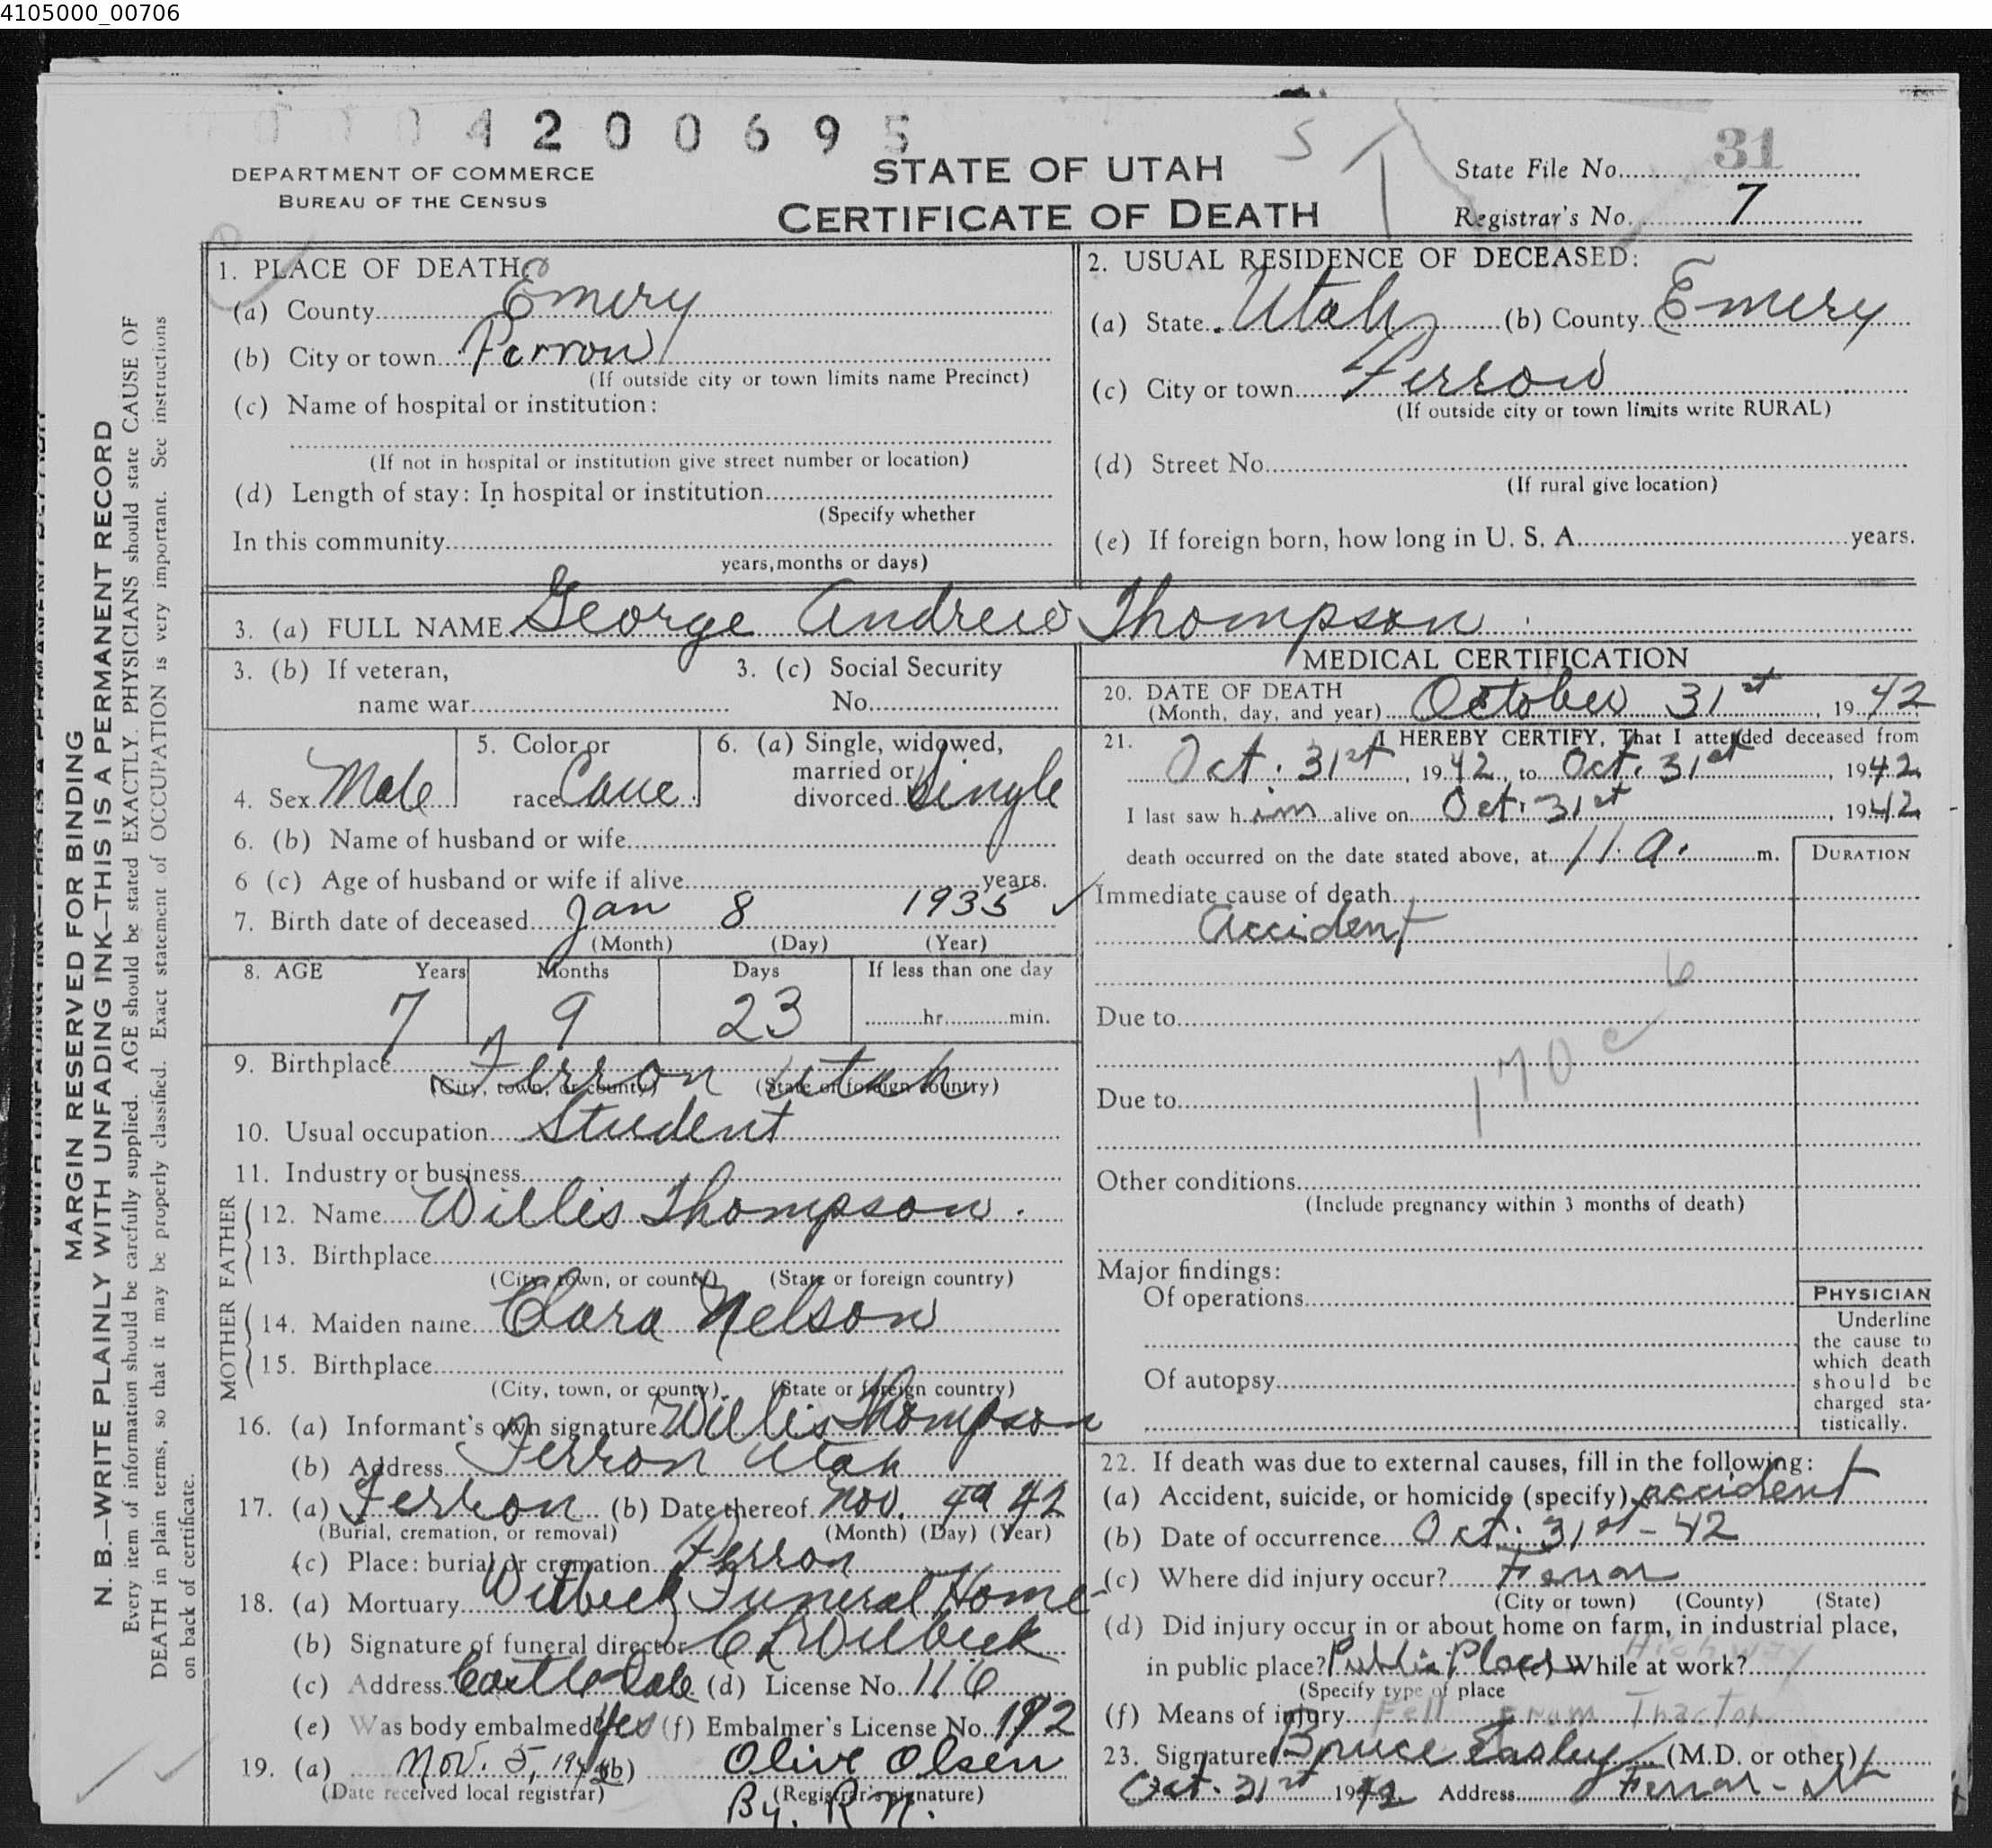 4105000_00706
4 2 0 0 6 9 5
DEPARTMENT OF COMMERCE
BUREAU OF THE CENSUS
STATE OF UTAH
CERTIFICATE OF DEATH
State File No. 31
Registrar's No. 7
1. PLACE OF DEATH:
(a) County Emery
(b) City or town Ferron
(If outside city or town limits name Precinct)
(c) Name of hospital or institution:
(If not in hospital or institution give street number or location)
(d) Length of stay: In hospital or institution
(Specify whether
In this community
years, months or days)
2. USUAL RESIDENCE OF DECEASED:
(a) State Utah (b) County Emery
(c) City or town Ferron
(If outside city or town limits write RURAL)
(d) Street No.
(If rural give location)
(e) If foreign born, how long in U. S. A. years.
3. (a) FULL NAME George Andrew Thompson
3. (b) If veteran, name war
3. (c) Social Security No.
4. Sex Male
5. Color or race Cauc.
6. (a) Single, widowed, married or divorced Single
6. (b) Name of husband or wife
6 (c) Age of husband or wife if alive years.
7. Birth date of deceased Jan 8 1935
(Month) (Day) (Year)
8. AGE Years Months Days If less than one day
7 9 23 hr. min.
9. Birthplace Ferron Utah
(City, town, or county) (State or foreign country)
10. Usual occupation Student
11. Industry or business
FATHER
12. Name Willis Thompson.
13. Birthplace
(City, town, or county) (State or foreign country)
MOTHER
14. Maiden name Clara Nelson
15. Birthplace
(City, town, or county) (State or foreign country)
16. (a) Informant's own signature Willis Thompson
(b) Address Ferron Utah
17. (a) Ferron (b) Date thereof Nov. 4 42
(Burial, cremation, or removal) (Month) (Day) (Year)
(c) Place: burial or cremation Ferron
18. (a) Mortuary Wilbeck Funeral Home
(b) Signature of funeral director Wilbeck
(c) Address Castle Dale (d) License No. 116
(e) Was body embalmed? Yes (f) Embalmer's License No. 192
19. (a) Nov. 5, 1942 (b) Olive Olsen
(Date received local registrar) (Registrar's signature)
By. R N.
MEDICAL CERTIFICATION
20. DATE OF DEATH
(Month, day, and year) October 31st, 1942
21. I HEREBY CERTIFY, That I attended deceased from
Oct. 31st, 1942, to Oct. 31st, 1942
I last saw him alive on Oct. 31st, 1942
death occurred on the date stated above, at 11 a. m.
DURATION
Immediate cause of death
Accident
Due to
170 c
6
Due to
Other conditions
(Include pregnancy within 3 months of death)
Major findings:
Of operations
Of autopsy
PHYSICIAN
Underline
the cause to
which death
should be
charged sta-
tistically.
22. If death was due to external causes, fill in the following:
(a) Accident, suicide, or homicide (specify) accident
(b) Date of occurrence Oct. 31st - 42
(c) Where did injury occur? Ferron
(City or town) (County) (State)
(d) Did injury occur in or about home on farm, in industrial place,
in public place? Public Place Highway (e) While at work?
(Specify type of place
(f) Means of injury Fell From Tractor
23. Signature Bruce Easley (M.D. or other)
Oct. 31st 1942 Address Ferron - Ut
MARGIN RESERVED FOR BINDING
N. B.—WRITE PLAINLY WITH UNFADING INK—THIS IS A PERMANENT RECORD
Every item of information should be carefully supplied. AGE should be stated EXACTLY. PHYSICIANS should state CAUSE OF
DEATH in plain terms, so that it may be properly classified. Exact statement of OCCUPATION is very important. See instructions
on back of certificate.